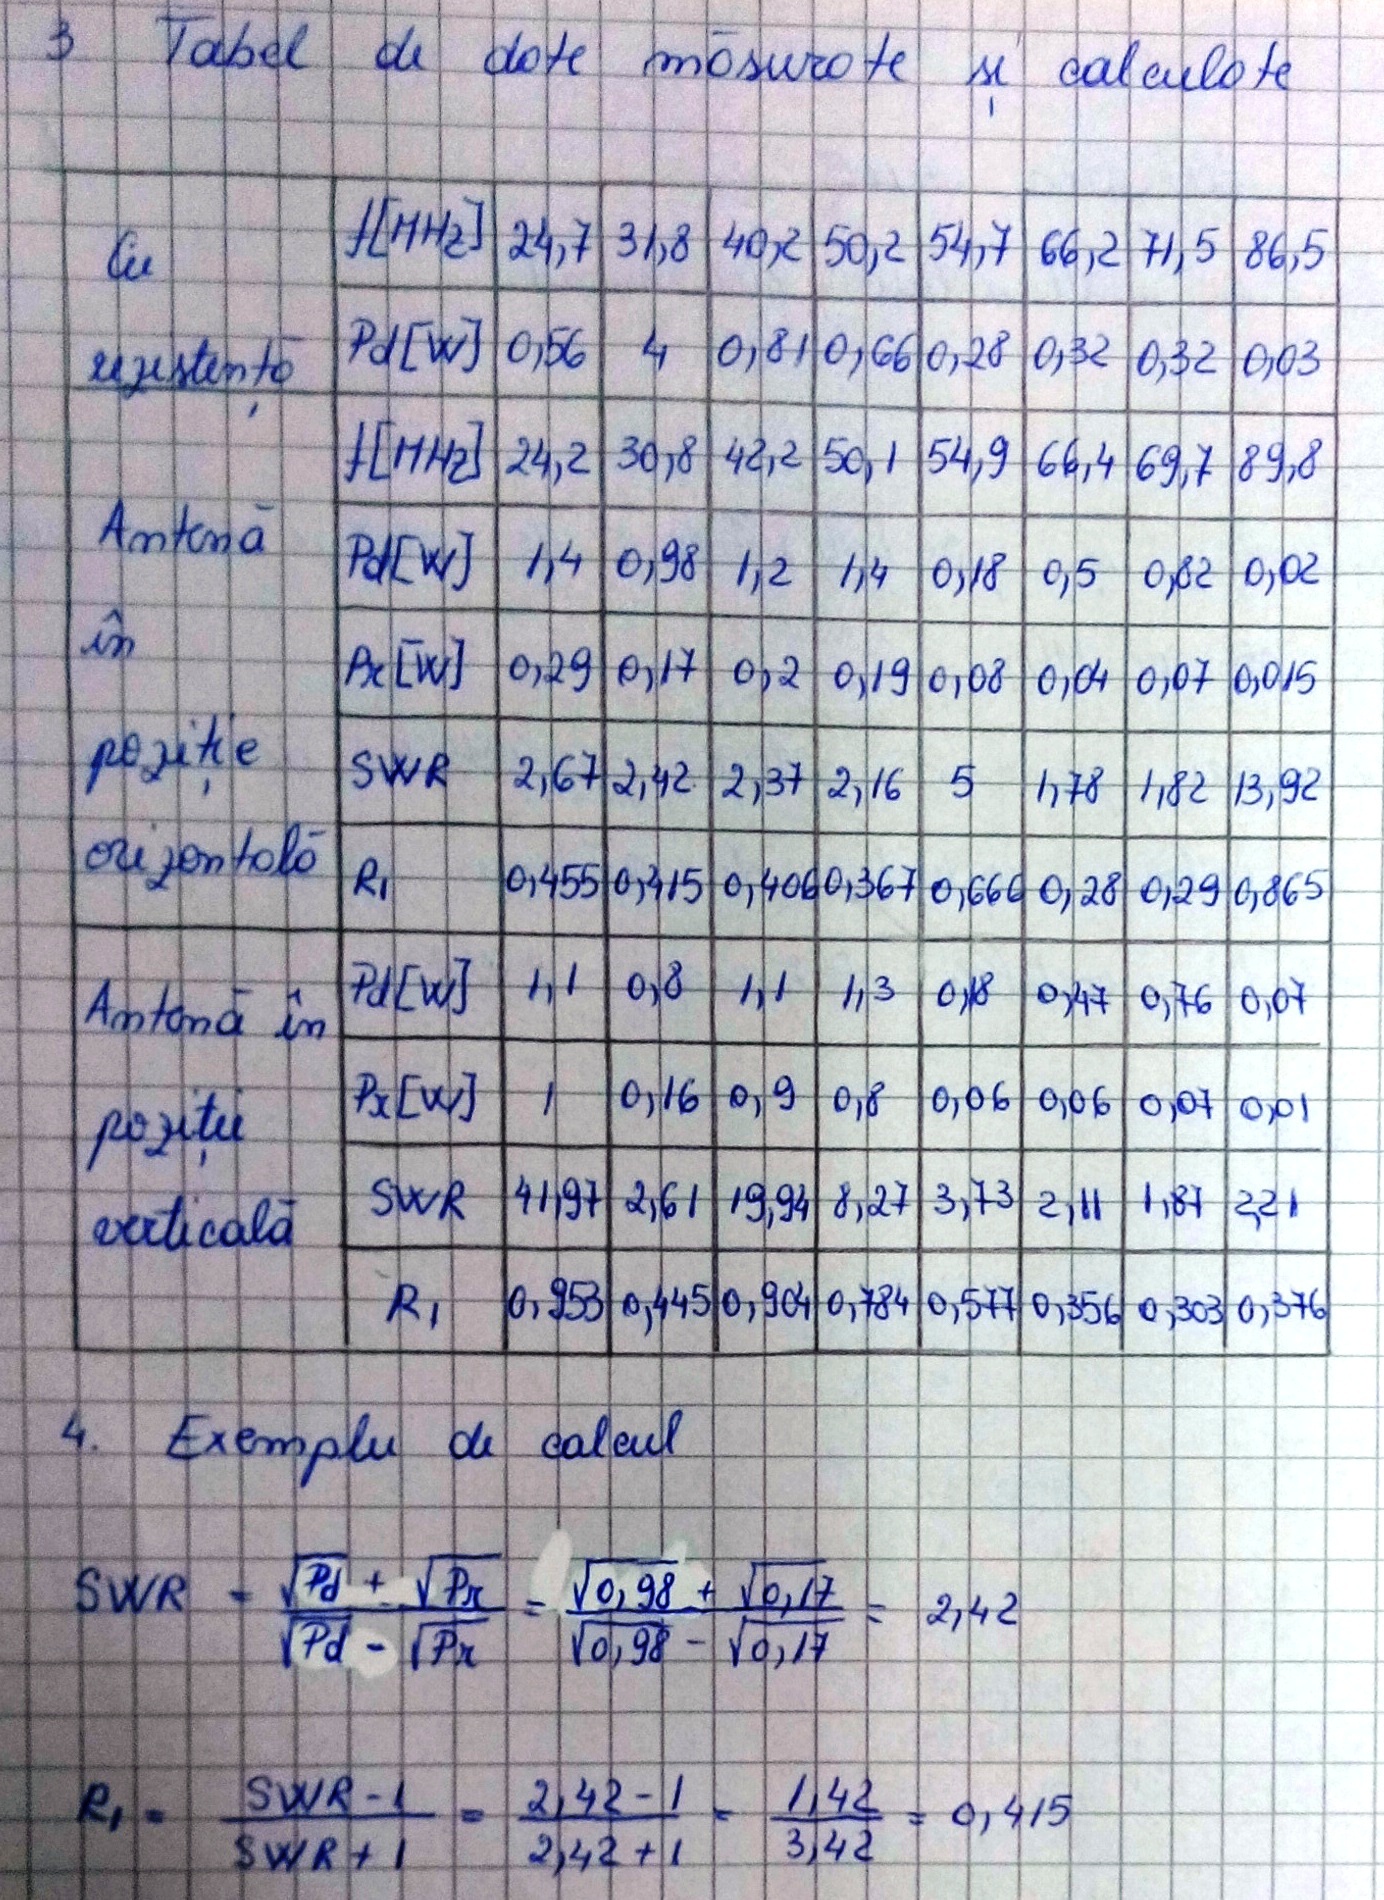 3 Tabel de date măsurate și calculate
Cu rezistență
f[MHz] 24,7 31,8 40,2 50,2 54,7 66,2 71,5 86,5
Pd[W] 0,56 4 0,81 0,66 0,28 0,32 0,32 0,03
Antenă în poziție orizontală
f[MHz] 24,2 30,8 42,2 50,1 54,9 66,4 69,7 89,8
Pd[W] 1,4 0,98 1,2 1,4 0,18 0,5 0,82 0,02
Pr[W] 0,29 0,17 0,2 0,19 0,08 0,04 0,07 0,015
SWR 2,67 2,42 2,37 2,16 5 1,78 1,82 13,92
R1 0,455 0,415 0,406 0,367 0,666 0,28 0,29 0,865
Antenă în poziție verticală
Pd[W] 1,1 0,8 1,1 1,3 0,18 0,47 0,76 0,07
Pr[W] 1 0,16 0,9 0,8 0,06 0,06 0,07 0,01
SWR 41,97 2,61 19,94 8,27 3,73 2,11 1,87 2,21
R1 0,953 0,445 0,904 0,784 0,577 0,356 0,303 0,376
4. Exemplu de calcul
SWR = (√Pd + √Pr)/(√Pd - √Pr) = (√0,98 + √0,17)/(√0,98 - √0,17) = 2,42
R1 = (SWR - 1)/(SWR + 1) = (2,42 - 1)/(2,42 + 1) = 1,42/3,42 = 0,415